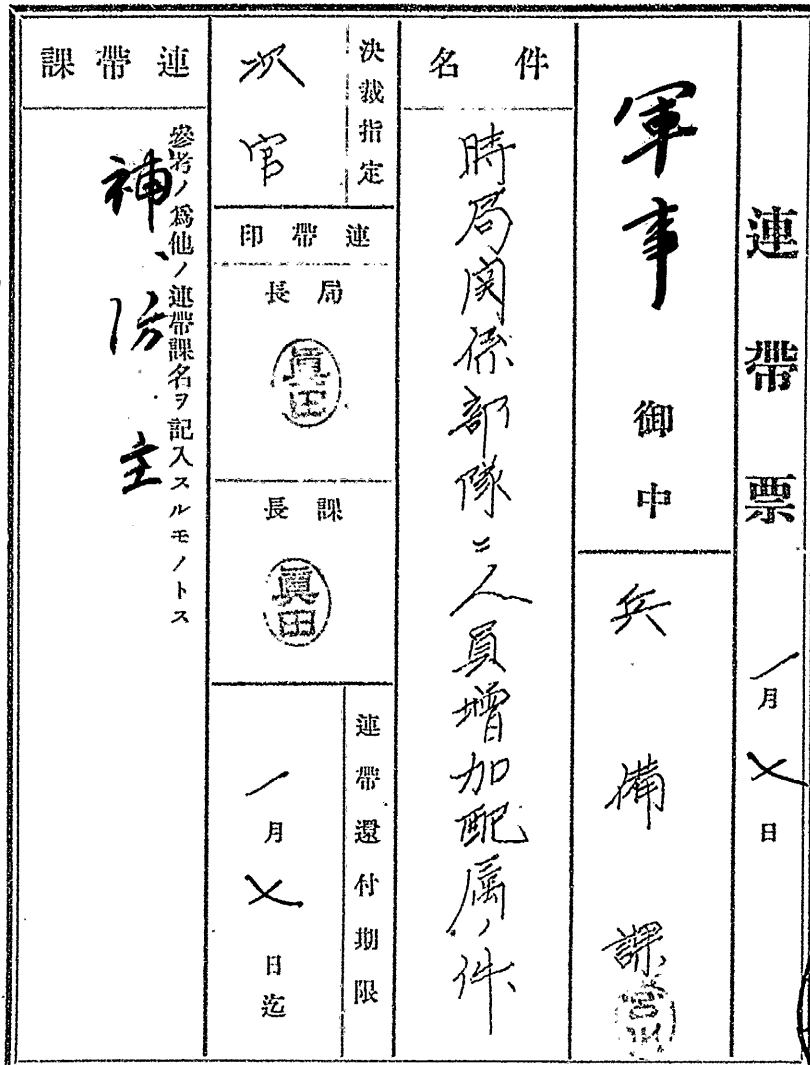 連帶票 一月七日
軍事 御中
兵備課
件名
時局関係部隊ニ人員増加配属ノ件
決裁指定
次官
連帶印
局長
眞田
課長
眞田
連帶還付期限
一月七日迄
連帶課
參考ノ爲他ノ連帶課名ヲ記入スルモノトス
補、防 主